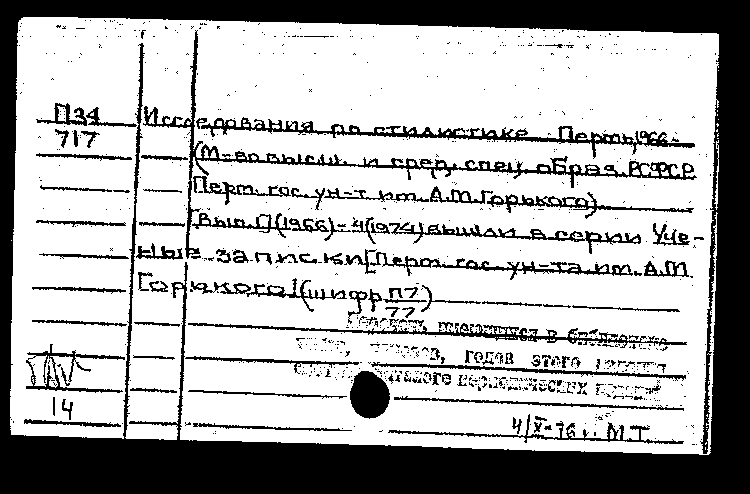 П34
717
Исследования по стилистике. Пермь, 1966-
(М-во высш. и сред. спец. образ. РСФСР.
Перм. гос. ун-т им. А.М.Горького).
[Вып.1](1966)-4(1974) вышли в серии Уче-
ные записки[Перм. гос. ун-та им. А.М.
Горького] (шифр П7/77)
Перечень имеющихся в библиотеке
годов этого издания
периодических
14
4/X-76 г. М.Т.